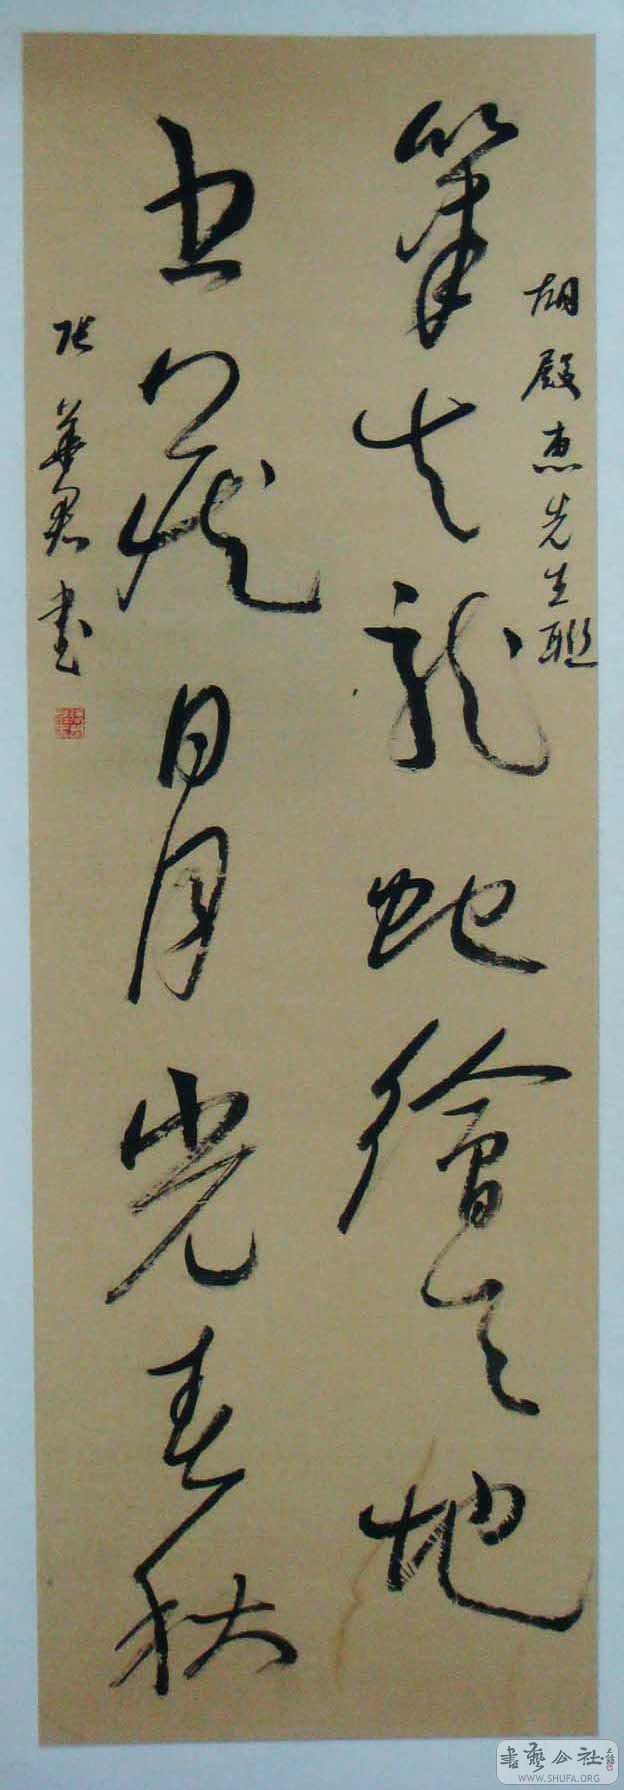 胡殿惠先生聯
筆走龍蛇繪天地
藏日月光春秋
张華君書
書藝公社
WWW.SHUFA.ORG